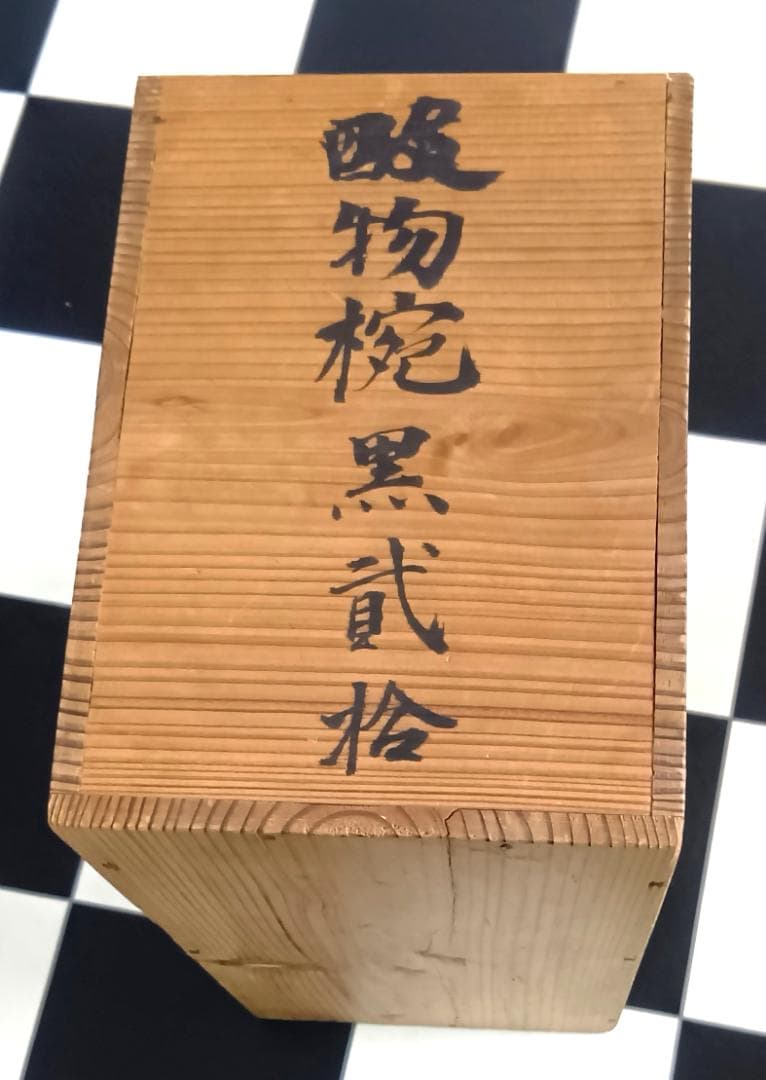 酸物椀黒貳拾